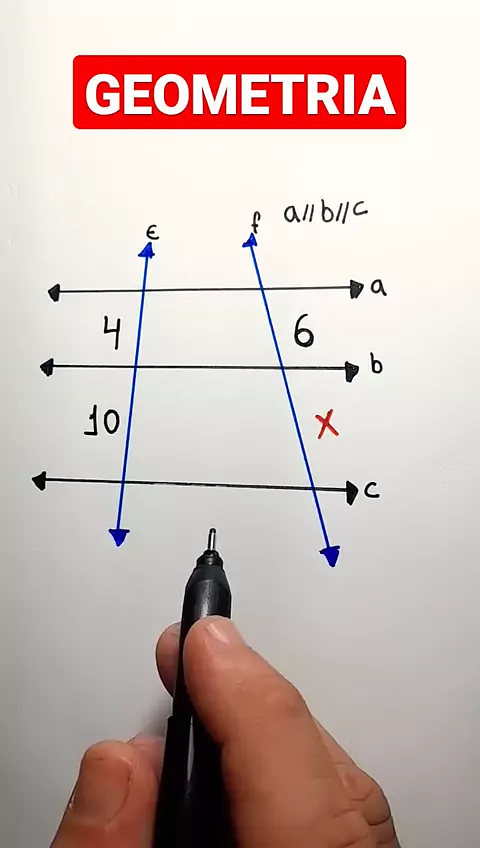 GEOMETRIA
a//b//c
e
f
a
4
6
b
10
x
c